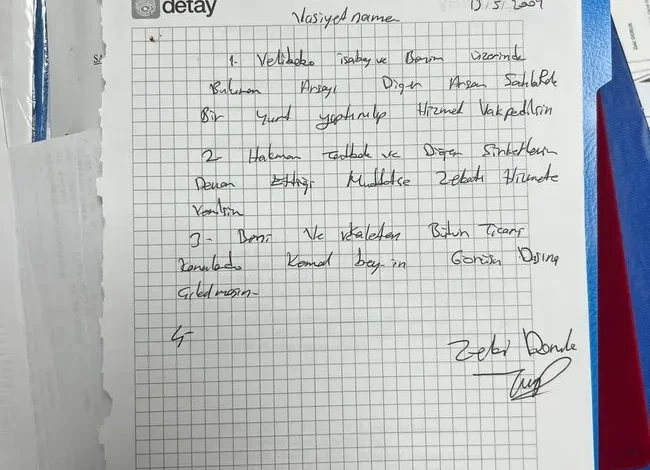 detay
Vasiyetname
1. Velibaba isabey ve Benim üzerinde
Bulunan Arsayı Diğer Arsan
Bir yurt yaptırılıp Hizmet Vakfedilsin
2 Hakman ve Diğer Şirketlerin
Devam Ettiği Müddetçe Zekatı Hizmete
Verilsin
3- Beni Ve Bütün Ticari
Konularda Kemal bey-in Görüşü Dışına
Çıkılmasın-
4-
Zeki